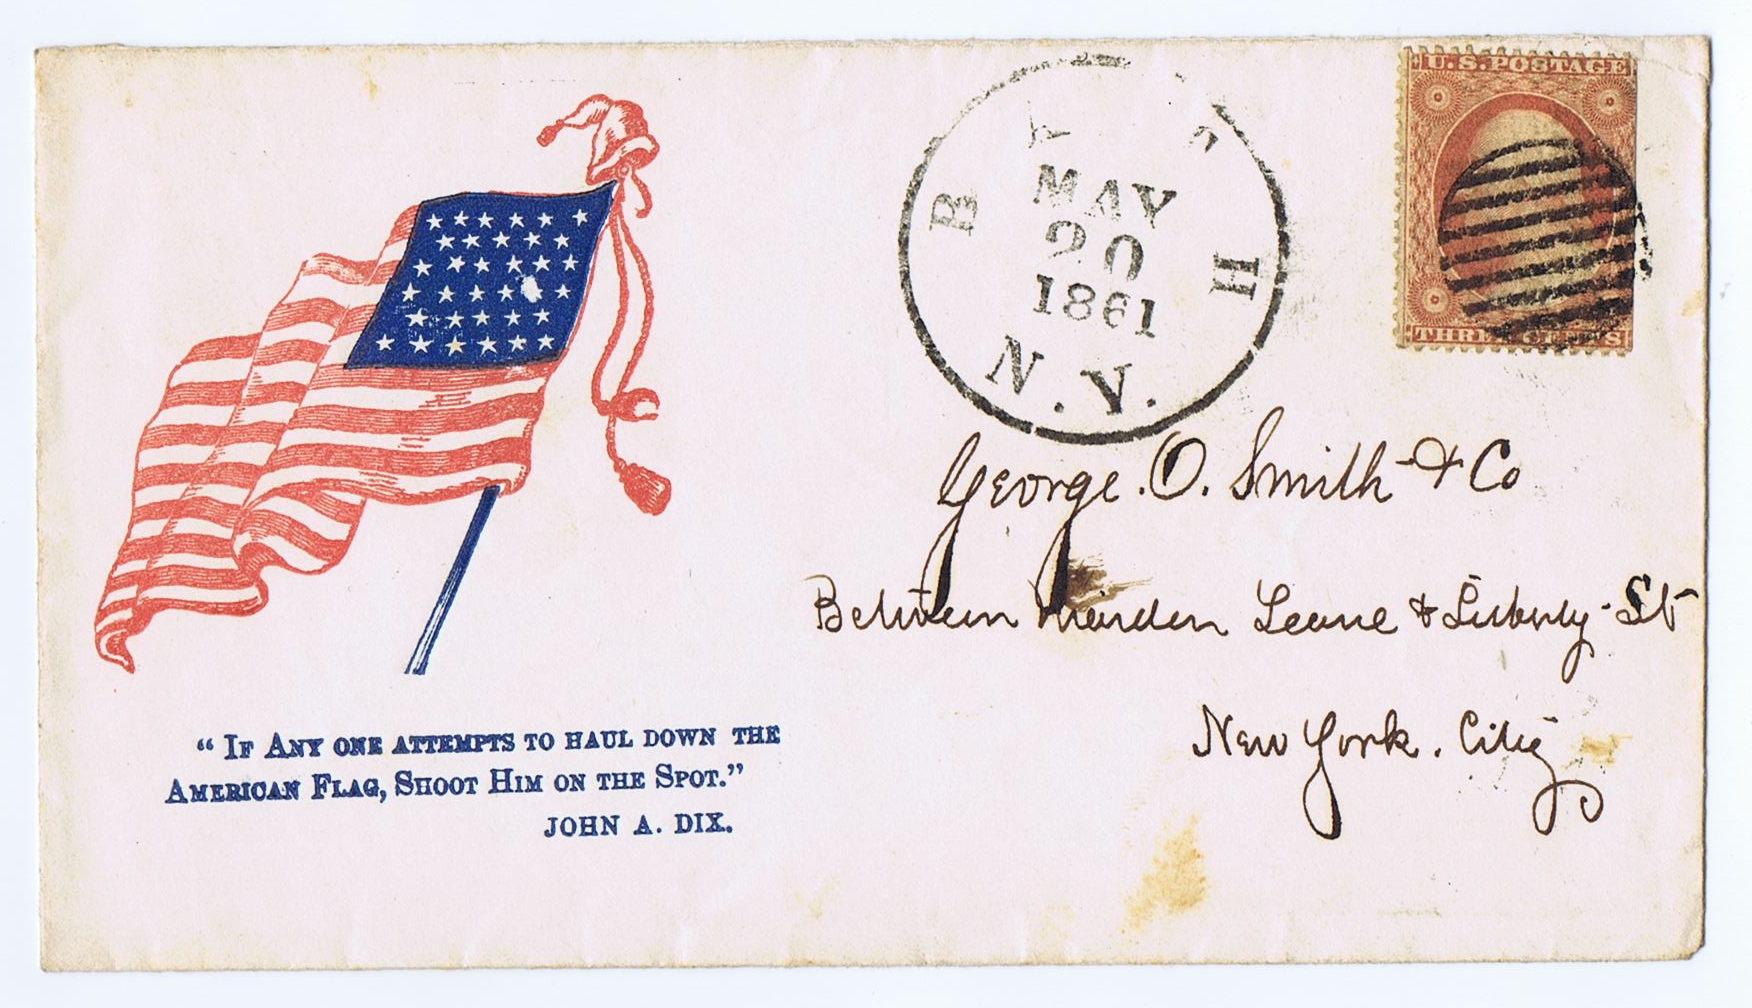 "IF ANY ONE ATTEMPTS TO HAUL DOWN THE
AMERICAN FLAG, SHOOT HIM ON THE SPOT."
JOHN A. DIX.
BATH
MAY
20
1861
N.Y.
U.S. POSTAGE
THREE CENTS
George. O. Smith & Co
Between Maiden Leane & Liberty St
New York. City